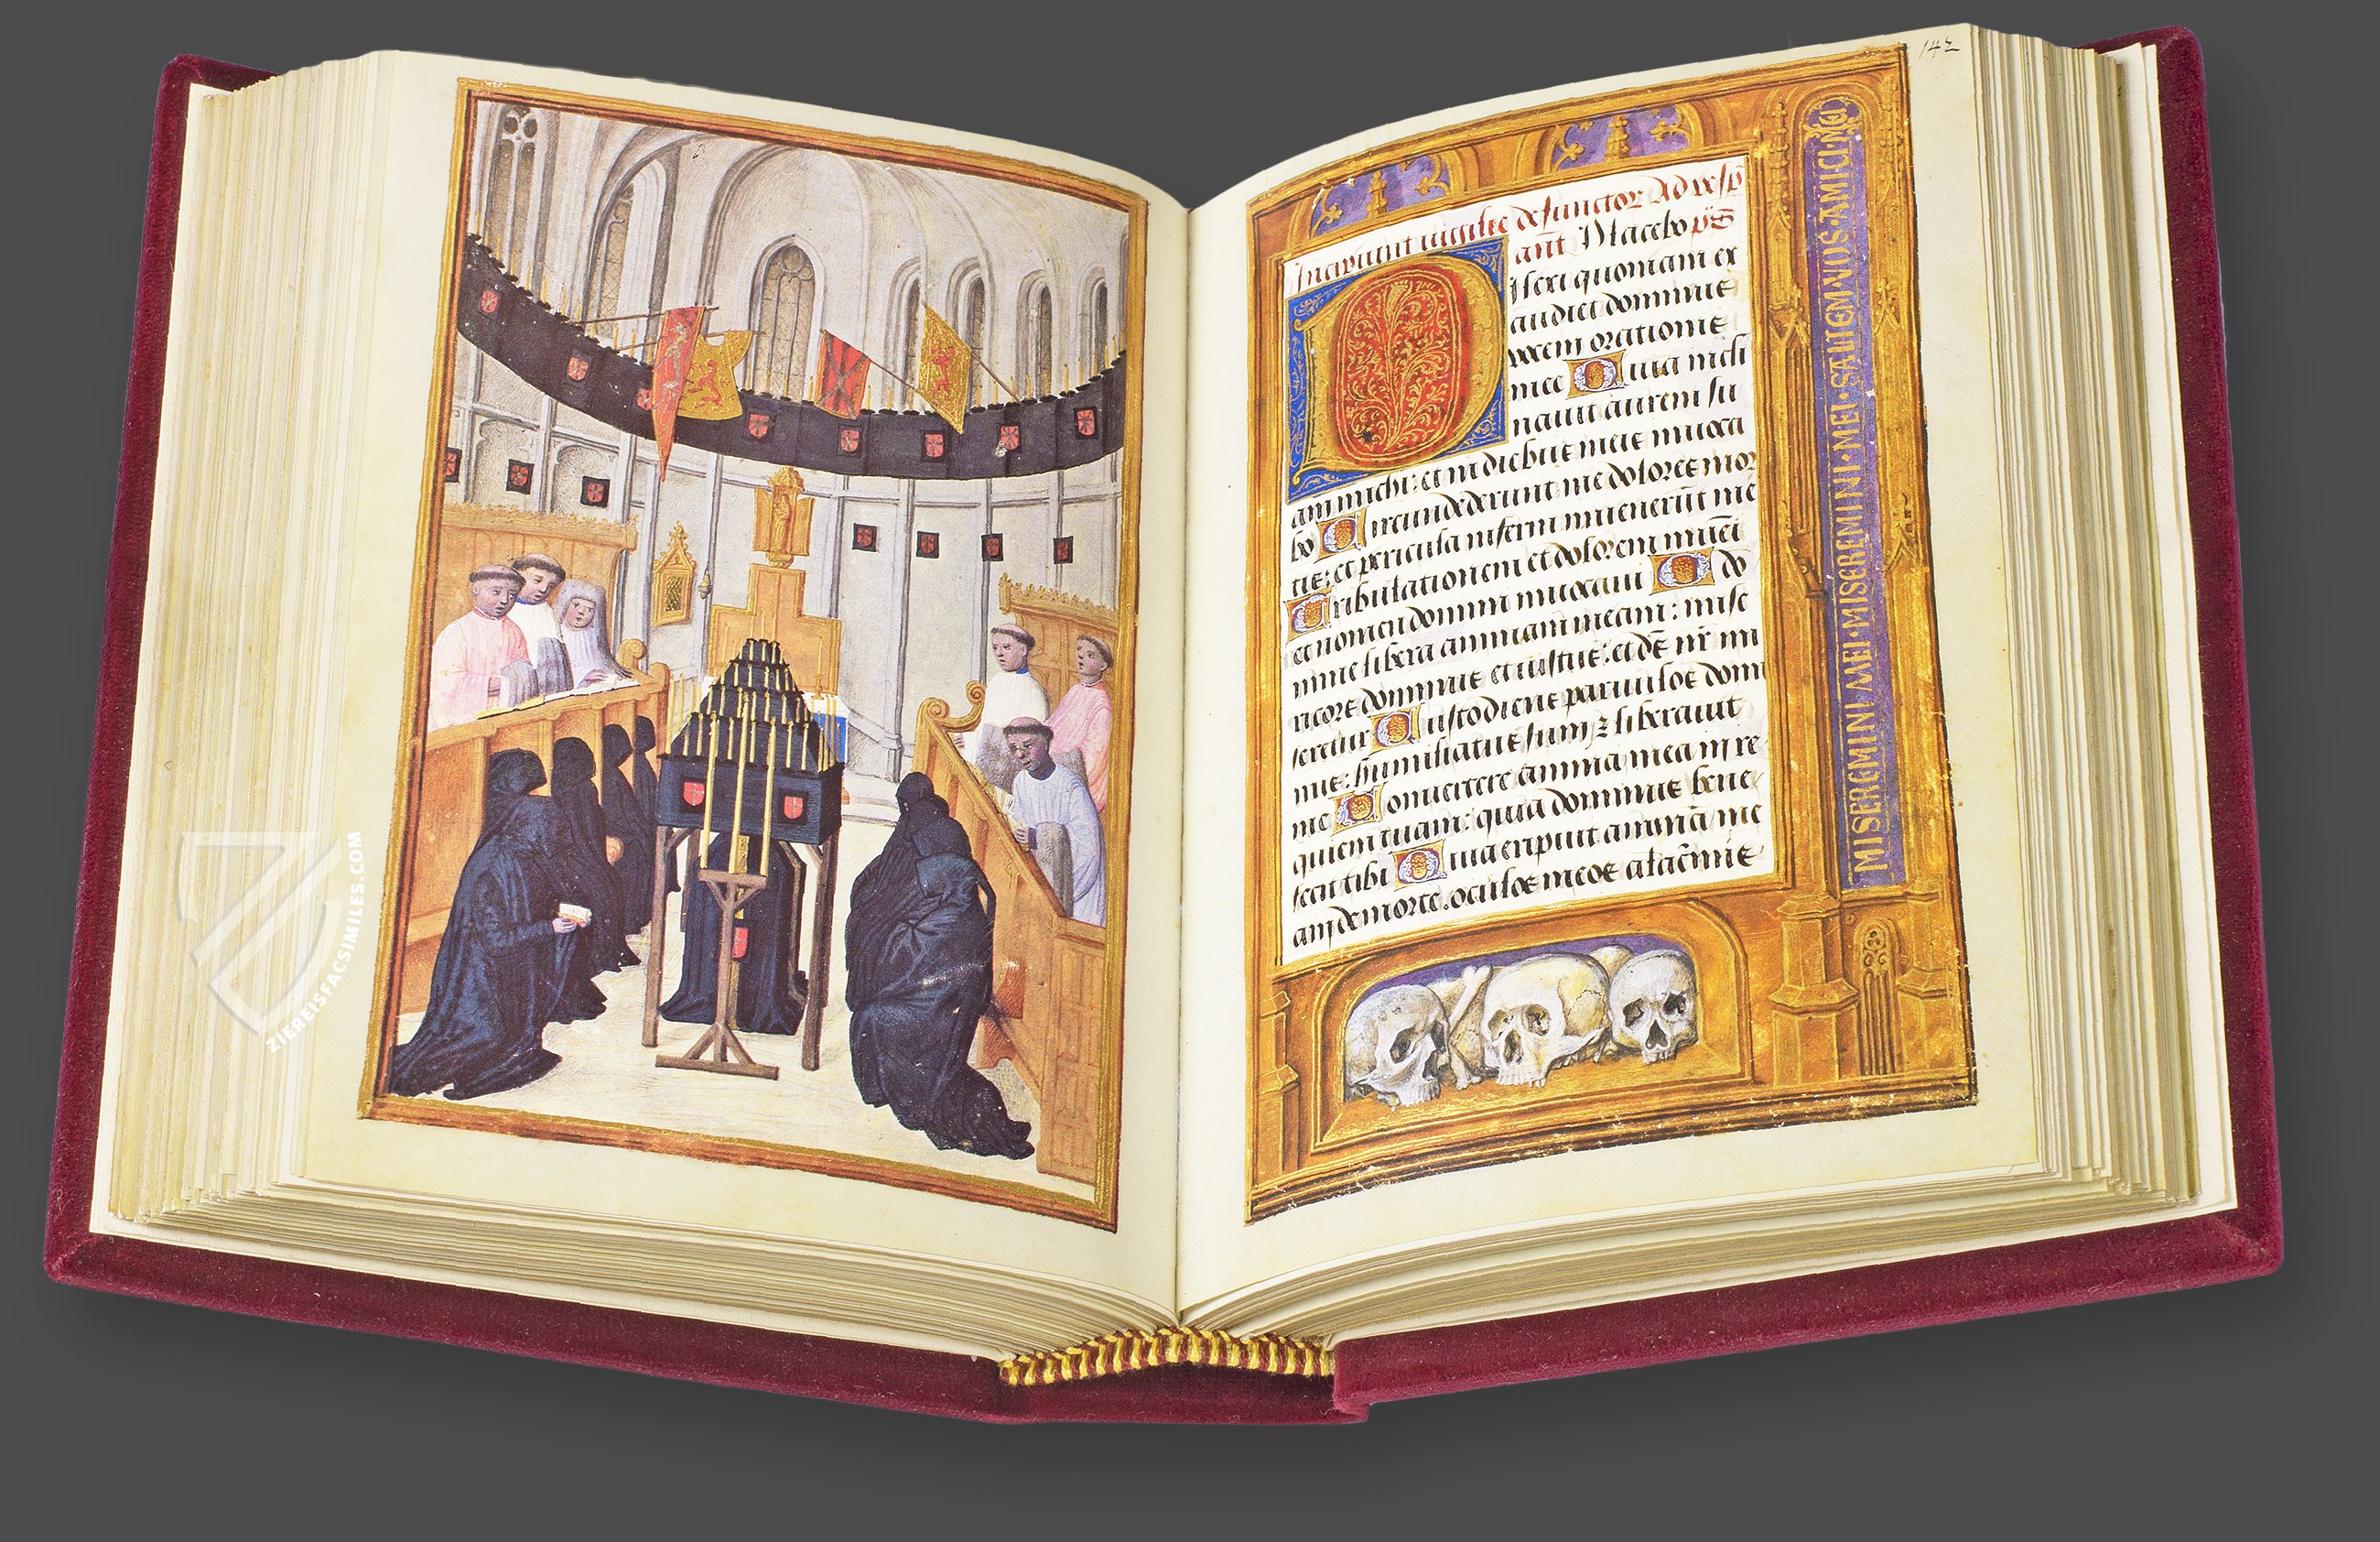 142
Incipiunt uigilie defunctor Ad uesp̄
ant̄ Placebo ps̄
Dilexi quoniam ex
audiet dominus
vocem orationis
mee Quia incli
nauit aurem su
am michi: et in diebus meis inuoca
bo Circundederunt me dolores mor
tis: et pericula inferni inuenerūt me
Tribulationem et dolorem inueni
et nomen domini inuocaui O do
mine libera animam meam: mise
ricors dominus et iustus: et dē nr̄ mi
seretur Custodiens paruulos domi
nus: humiliatus sum ꝛ liberauit
me Conuertere anima mea in re
quiem tuam: quia dominus bene
fecit tibi Quia eripuit animā me
am de morte. oculos meos a lacrīmis
MISEREMINI·MEI·MISEREMINI·MEI·SALTEM·VOS·AMICI·MEI
ZIEREISFACSIMILES.COM